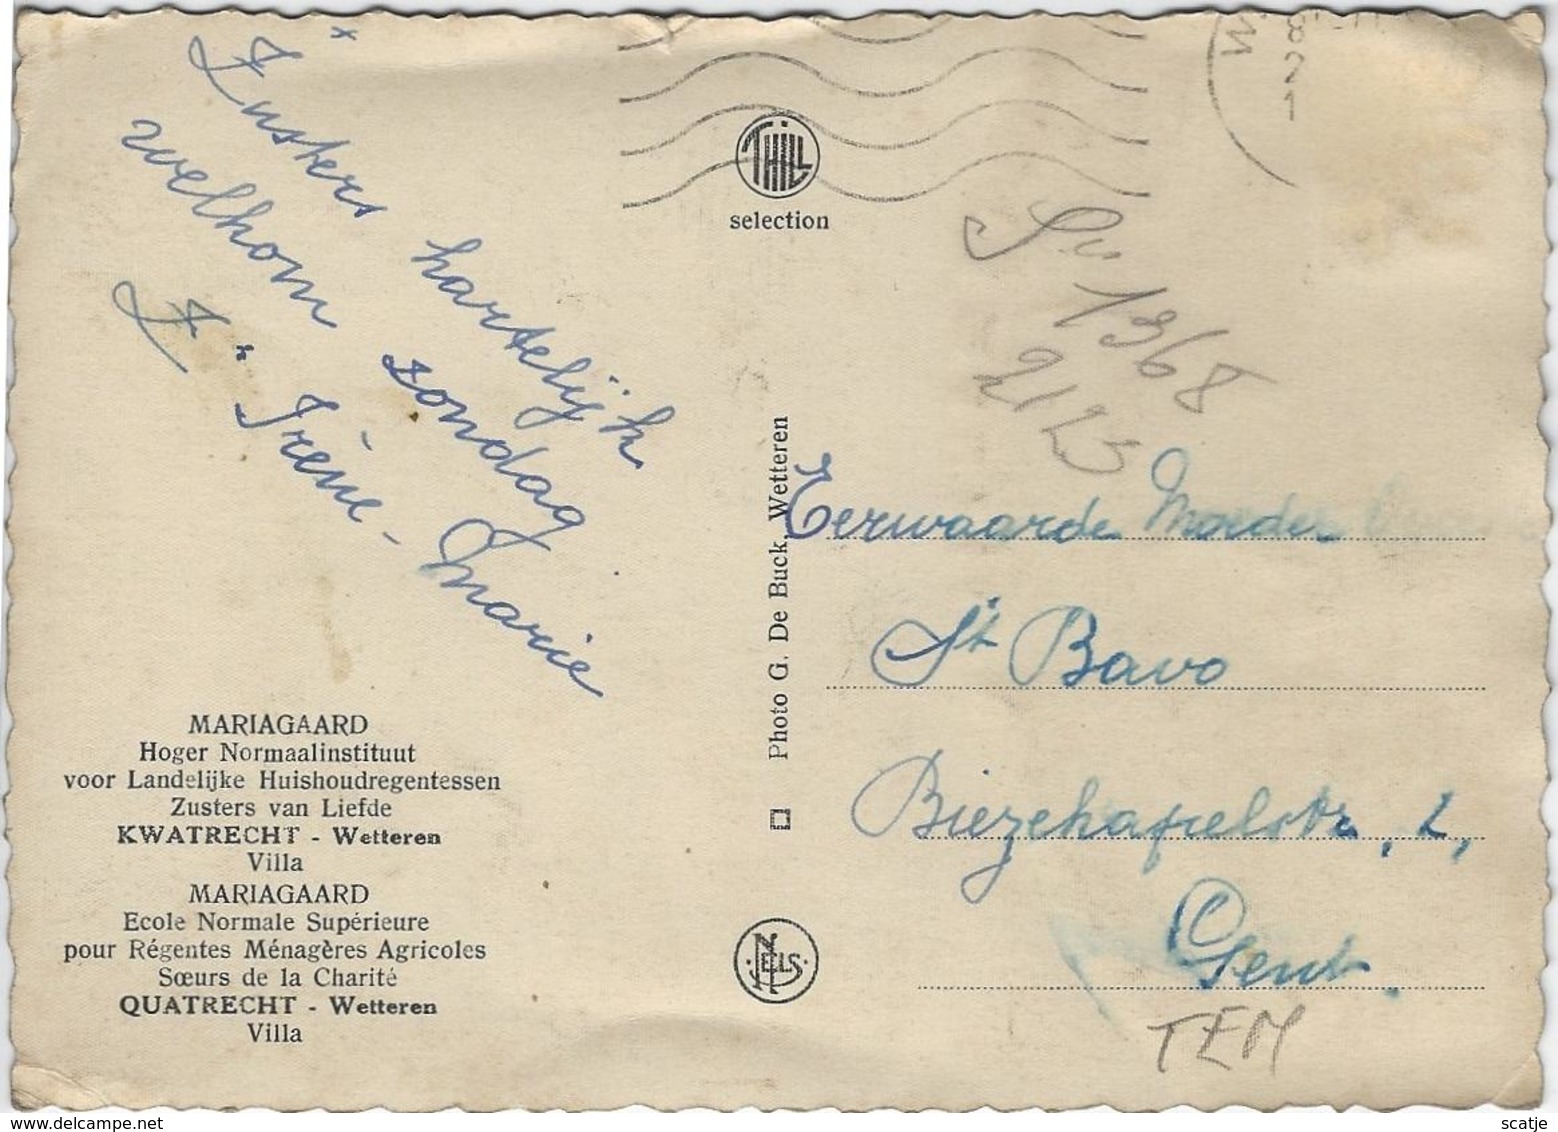 Zusters hartelijk
welkom zondag
Zr Irène - Marie
MARIAGAARD
Hoger Normaalinstituut
voor Landelijke Huishoudregentessen
Zusters van Liefde
KWATRECHT - Wetteren
Villa
MARIAGAARD
Ecole Normale Supérieure
pour Régentes Ménagères Agricoles
Sœurs de la Charité
QUATRECHT - Wetteren
Villa
THILL
selection
Photo G. De Buck, Wetteren
NELS
W
8
21
1368
2123
Eerwaarde Moeder
St Bavo
Biezekapelstr, 2,
Gent.
TEM
scatje